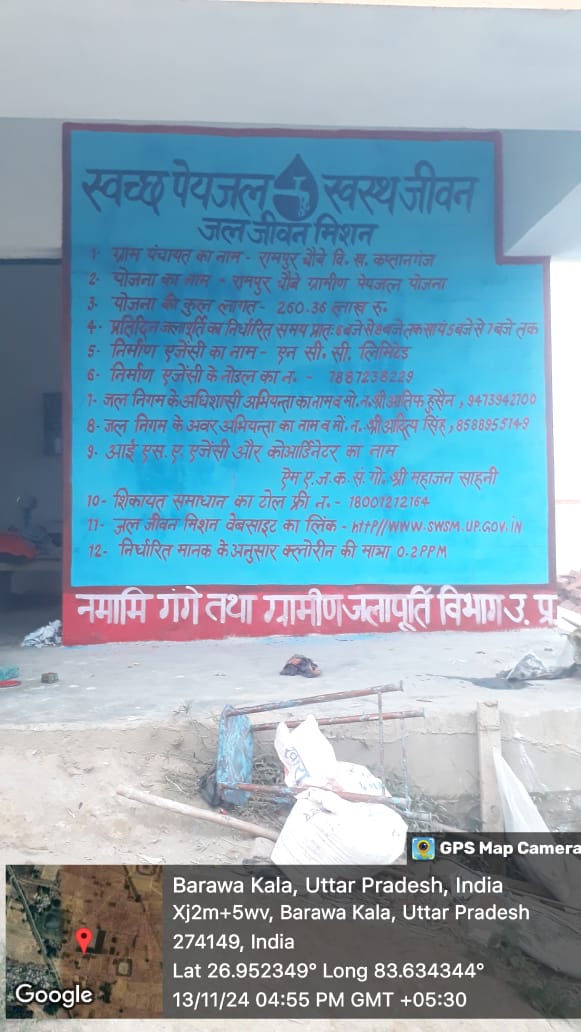 स्वच्छ पेयजल स्वस्थ जीवन
जल जीवन मिशन
1- ग्राम पंचायत का नाम - रामपुर चौबे वि. ख. कप्तानगंज
2- योजना का नाम - रामपुर चौबे ग्रामीण पेयजल योजना
3- योजना की कुल लागत - 260.36 लाख रु.
4- प्रतिदिन जलापूर्ति का निर्धारित समय प्रातः 6 बजे से 8 बजे तक सायं 5 बजे से 7 बजे तक
5- निर्माण एजेंसी का नाम - एन सी. सी. लिमिटेड
6- निर्माण एजेंसी के नोडल का न. - 7887238229
7- जल निगम के अधिशासी अभियन्ता का नाम व मो. न. श्री आतिफ हुसैन, 9473942700
8- जल निगम के अवर अभियन्ता का नाम व मों. न. श्री आदित्य सिंह, 8588955149
9- आई एस. ए. एजेंसी और कोआर्डिनेटर का नाम
ऐम ए. ज. क. सं. गो. श्री महाजन साहनी
10- शिकायत समाधान का टोल फ्री न. - 18001212164
11- जल जीवन मिशन वेबसाइट का लिंक - HTTP//WWW.SWSM.UP.GOV.IN
12- निर्धारित मानक के अनुसार क्लोरीन की मात्रा 0.2PPM
नमामि गंगे तथा ग्रामीण जलापूर्ति विभाग उ. प्र.
GPS Map Camera
Barawa Kala, Uttar Pradesh, India
Xj2m+5wv, Barawa Kala, Uttar Pradesh
274149, India
Lat 26.952349° Long 83.634344°
13/11/24 04:55 PM GMT +05:30
Google